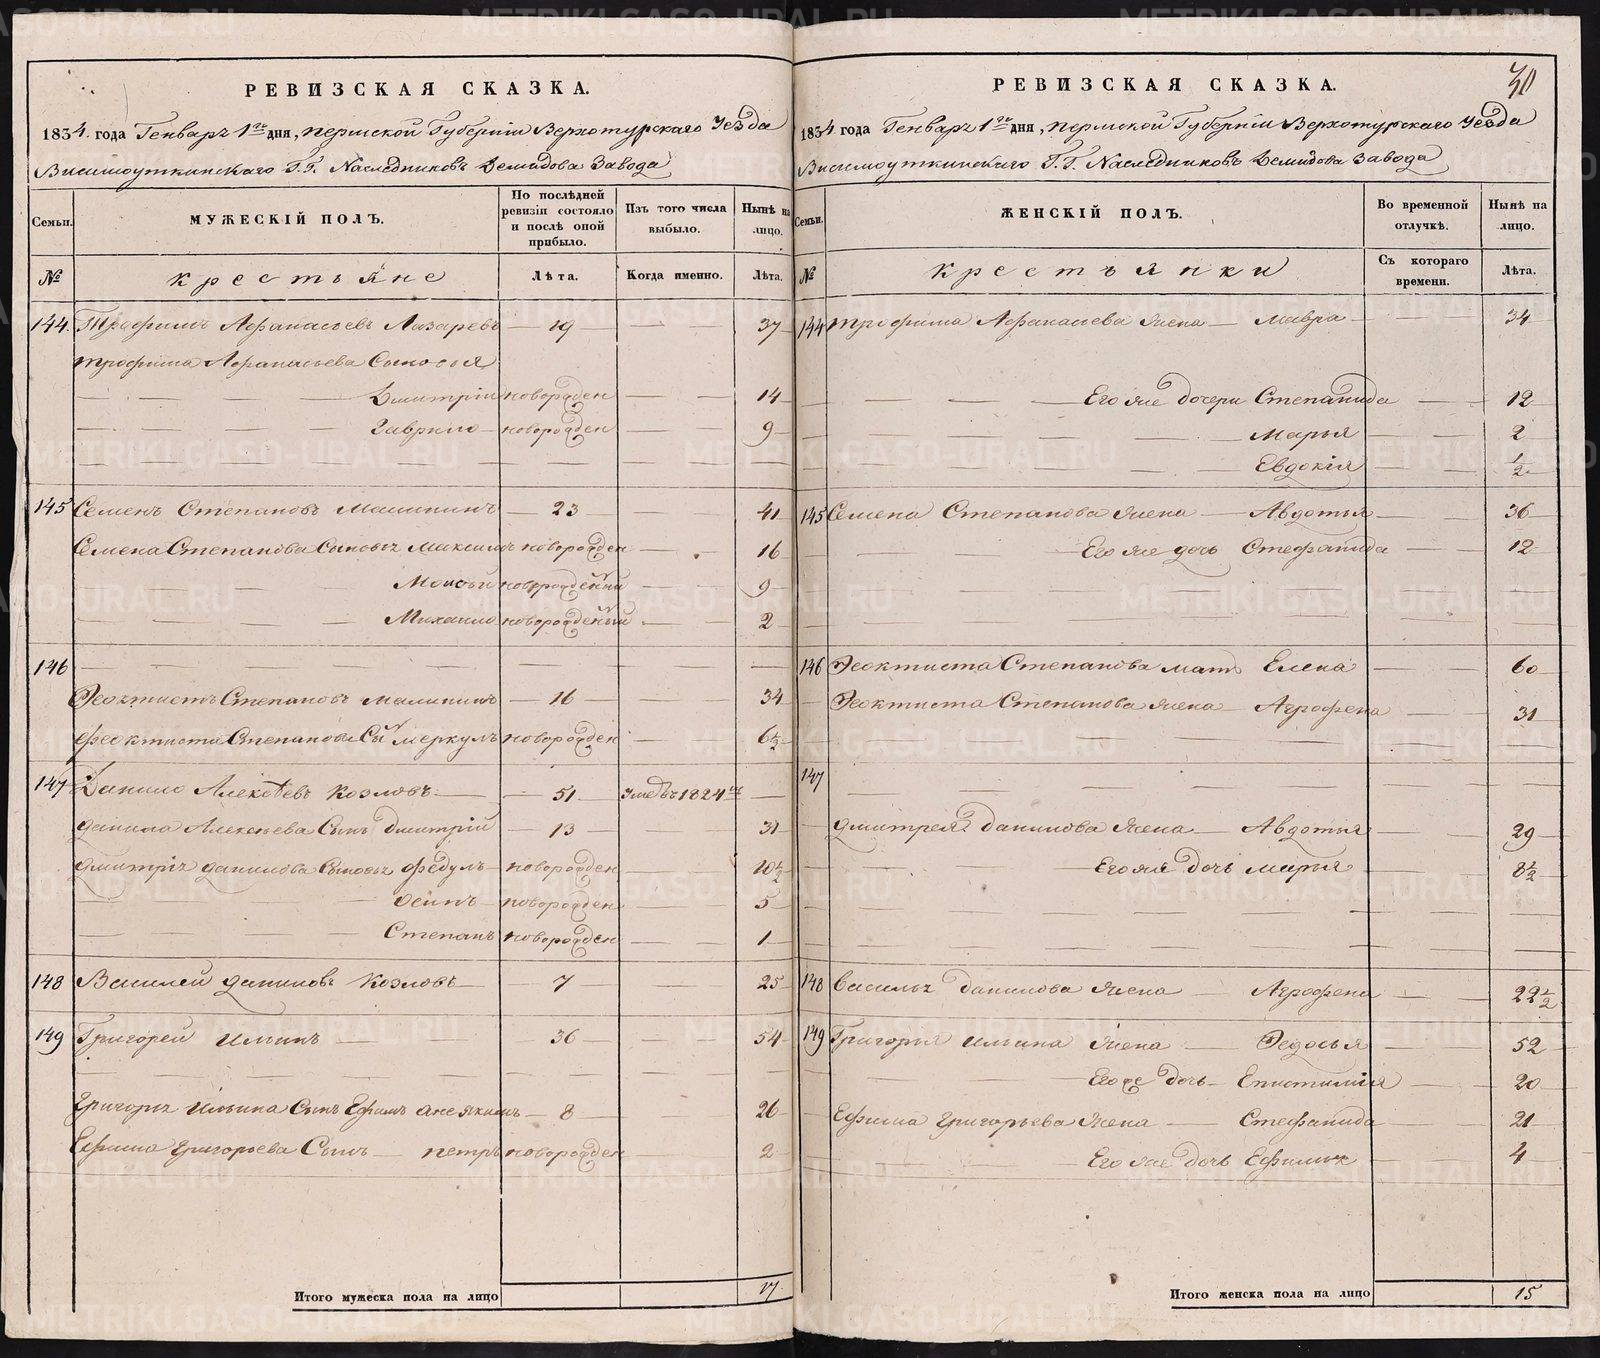 РЕВИЗСКАЯ СКАЗКА.
1834. года Генваря 1го дня, Пермской Губернии Верхотурскаго Уезда
Висимоуткинскаго Г.Г. Наследниковъ Демидова Завода
Семьи.
МУЖЕСКІЙ ПОЛЪ.
По послѣдней ревизіи состояло и послѣ оной прибыло.
Изъ того числа выбыло.
Нынѣ на лицо.
№
Крестьяне
Лѣта.
Когда именно.
Лѣта.
144. Трофимъ Афанасьевъ Лазаревъ 19 37
Трофима Афанасьева Сыновья
Дмитрій новорожден 14
Гаврило новорожден 9
145 Семенъ Степановъ Малининъ 23 41
Семена Степанова Сыновья Максимъ новорожден 16
Моисѣй новорожденый 9
Михаило новорожденый 2
146
Феоктистъ Степановъ Малининъ 16 34
Феоктиста Степанова Сынъ Меркулъ новорожден 6½
147 Данило Алексѣевъ Козловъ 51 Уме въ 1824
Данила Алексеева Сынъ Дмитрій 13 31
Дмитрія Данилова Сыновья Федулъ новорожден 10½
новорожден 5
Степанъ новорожден 1
148 Василей Даниловъ Козловъ 7 25
149 Григорей Ильинъ 36 54
Григорья Ильина Сынъ Ефимъ 8 26
Ефима Григорьева Сынъ Петръ новорожден 2
Итого мужеска пола на лицо 17
30
РЕВИЗСКАЯ СКАЗКА.
1834 года Генваря 1го дня, Пермской Губерніи Верхотурскаго Уезда
Висимоуткинскаго Г.Г. Наследниковъ Демидова Завода
Семьи.
ЖЕНСКІЙ ПОЛЪ.
Во временной отлучкѣ.
Нынѣ на лицо.
№
Крестьянки
Съ котораго времени.
Лѣта.
144 Трофима Афанасьева жена Мавра 34
Его же дочери Степанида 12
Марья 2
Евдокія ½
145 Семена Степанова жена Авдотья 36
Его же дочь Стефанида 12
146 Феоктиста Степанова мать Елена 60
Феоктиста Степанова жена Агрофена 31
147
Дмитрея Данилова жена Авдотья 29
Его же дочь Марья 8½
148 Василья Данилова жена Агрофена 22½
149 Григорья Ильина жена Федосья 52
Его же дочь Епистимія 20
Ефима Григорьева жена Стефанида 21
Его же дочь Ефимья 4
Итого женска пола на лицо 15
METRIKI.GASO-URAL.RU